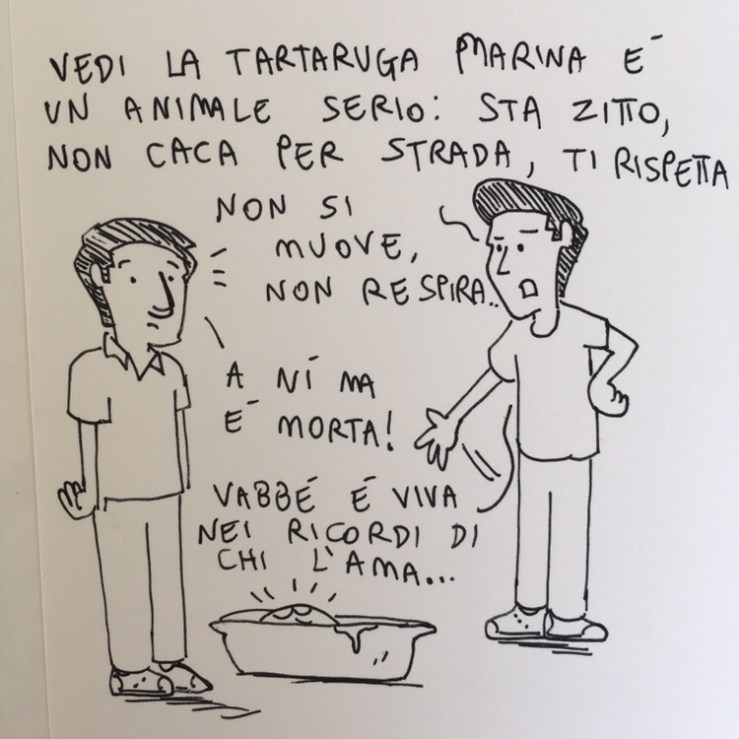 VEDI LA TARTARUGA MARINA É
UN ANIMALE SERIO: STA ZITTO,
NON CACA PER STRADA, TI RISPETTA
NON SI
MUOVE,
NON RESPIRA..
A NÍ MA
É MORTA!
VABBÉ É VIVA
NEI RICORDI DI
CHI L'AMA...